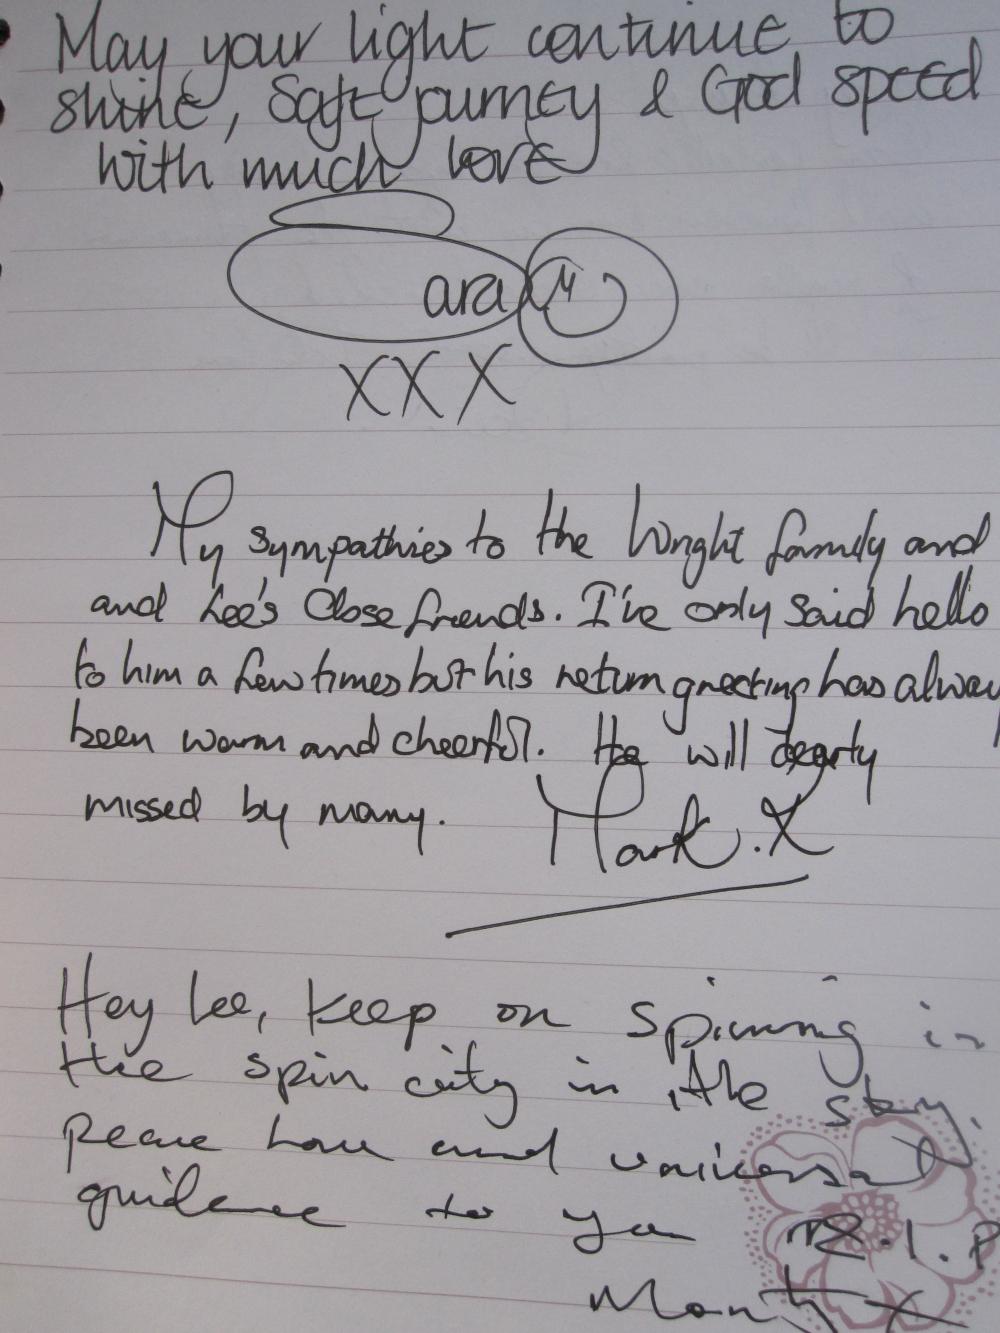 May your light continue to
shine, Safe journey & God speed
with much love
ara
XXX
My sympathies to the Wright family and
and Lee's Close friends. I've only said hello
to him a few times but his return greeting has alway
been warm and cheerful. He will dearly
missed by many. Mark.X
Hey Lee, Keep on spinning in
the spin city in the sky.
Peace Love and universal
guidance to you R.I.P
X